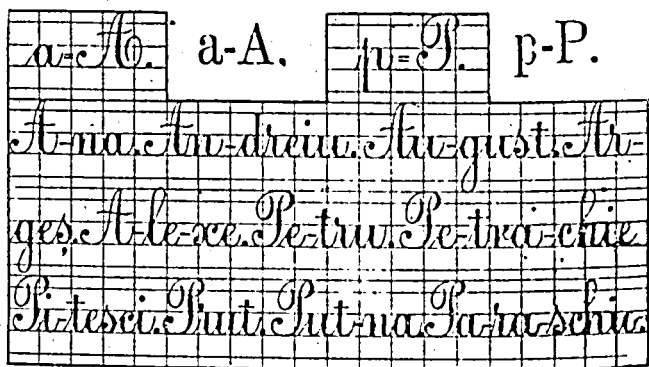 a=A. a-A. p=P. p-P.
A-na. An-dreiu. Au-gust. Ar-
geș. A-le-xe. Pe-tru. Pe-tra-chie
Pi-tesci. Prut. Put-na Pa-ra-schiv.